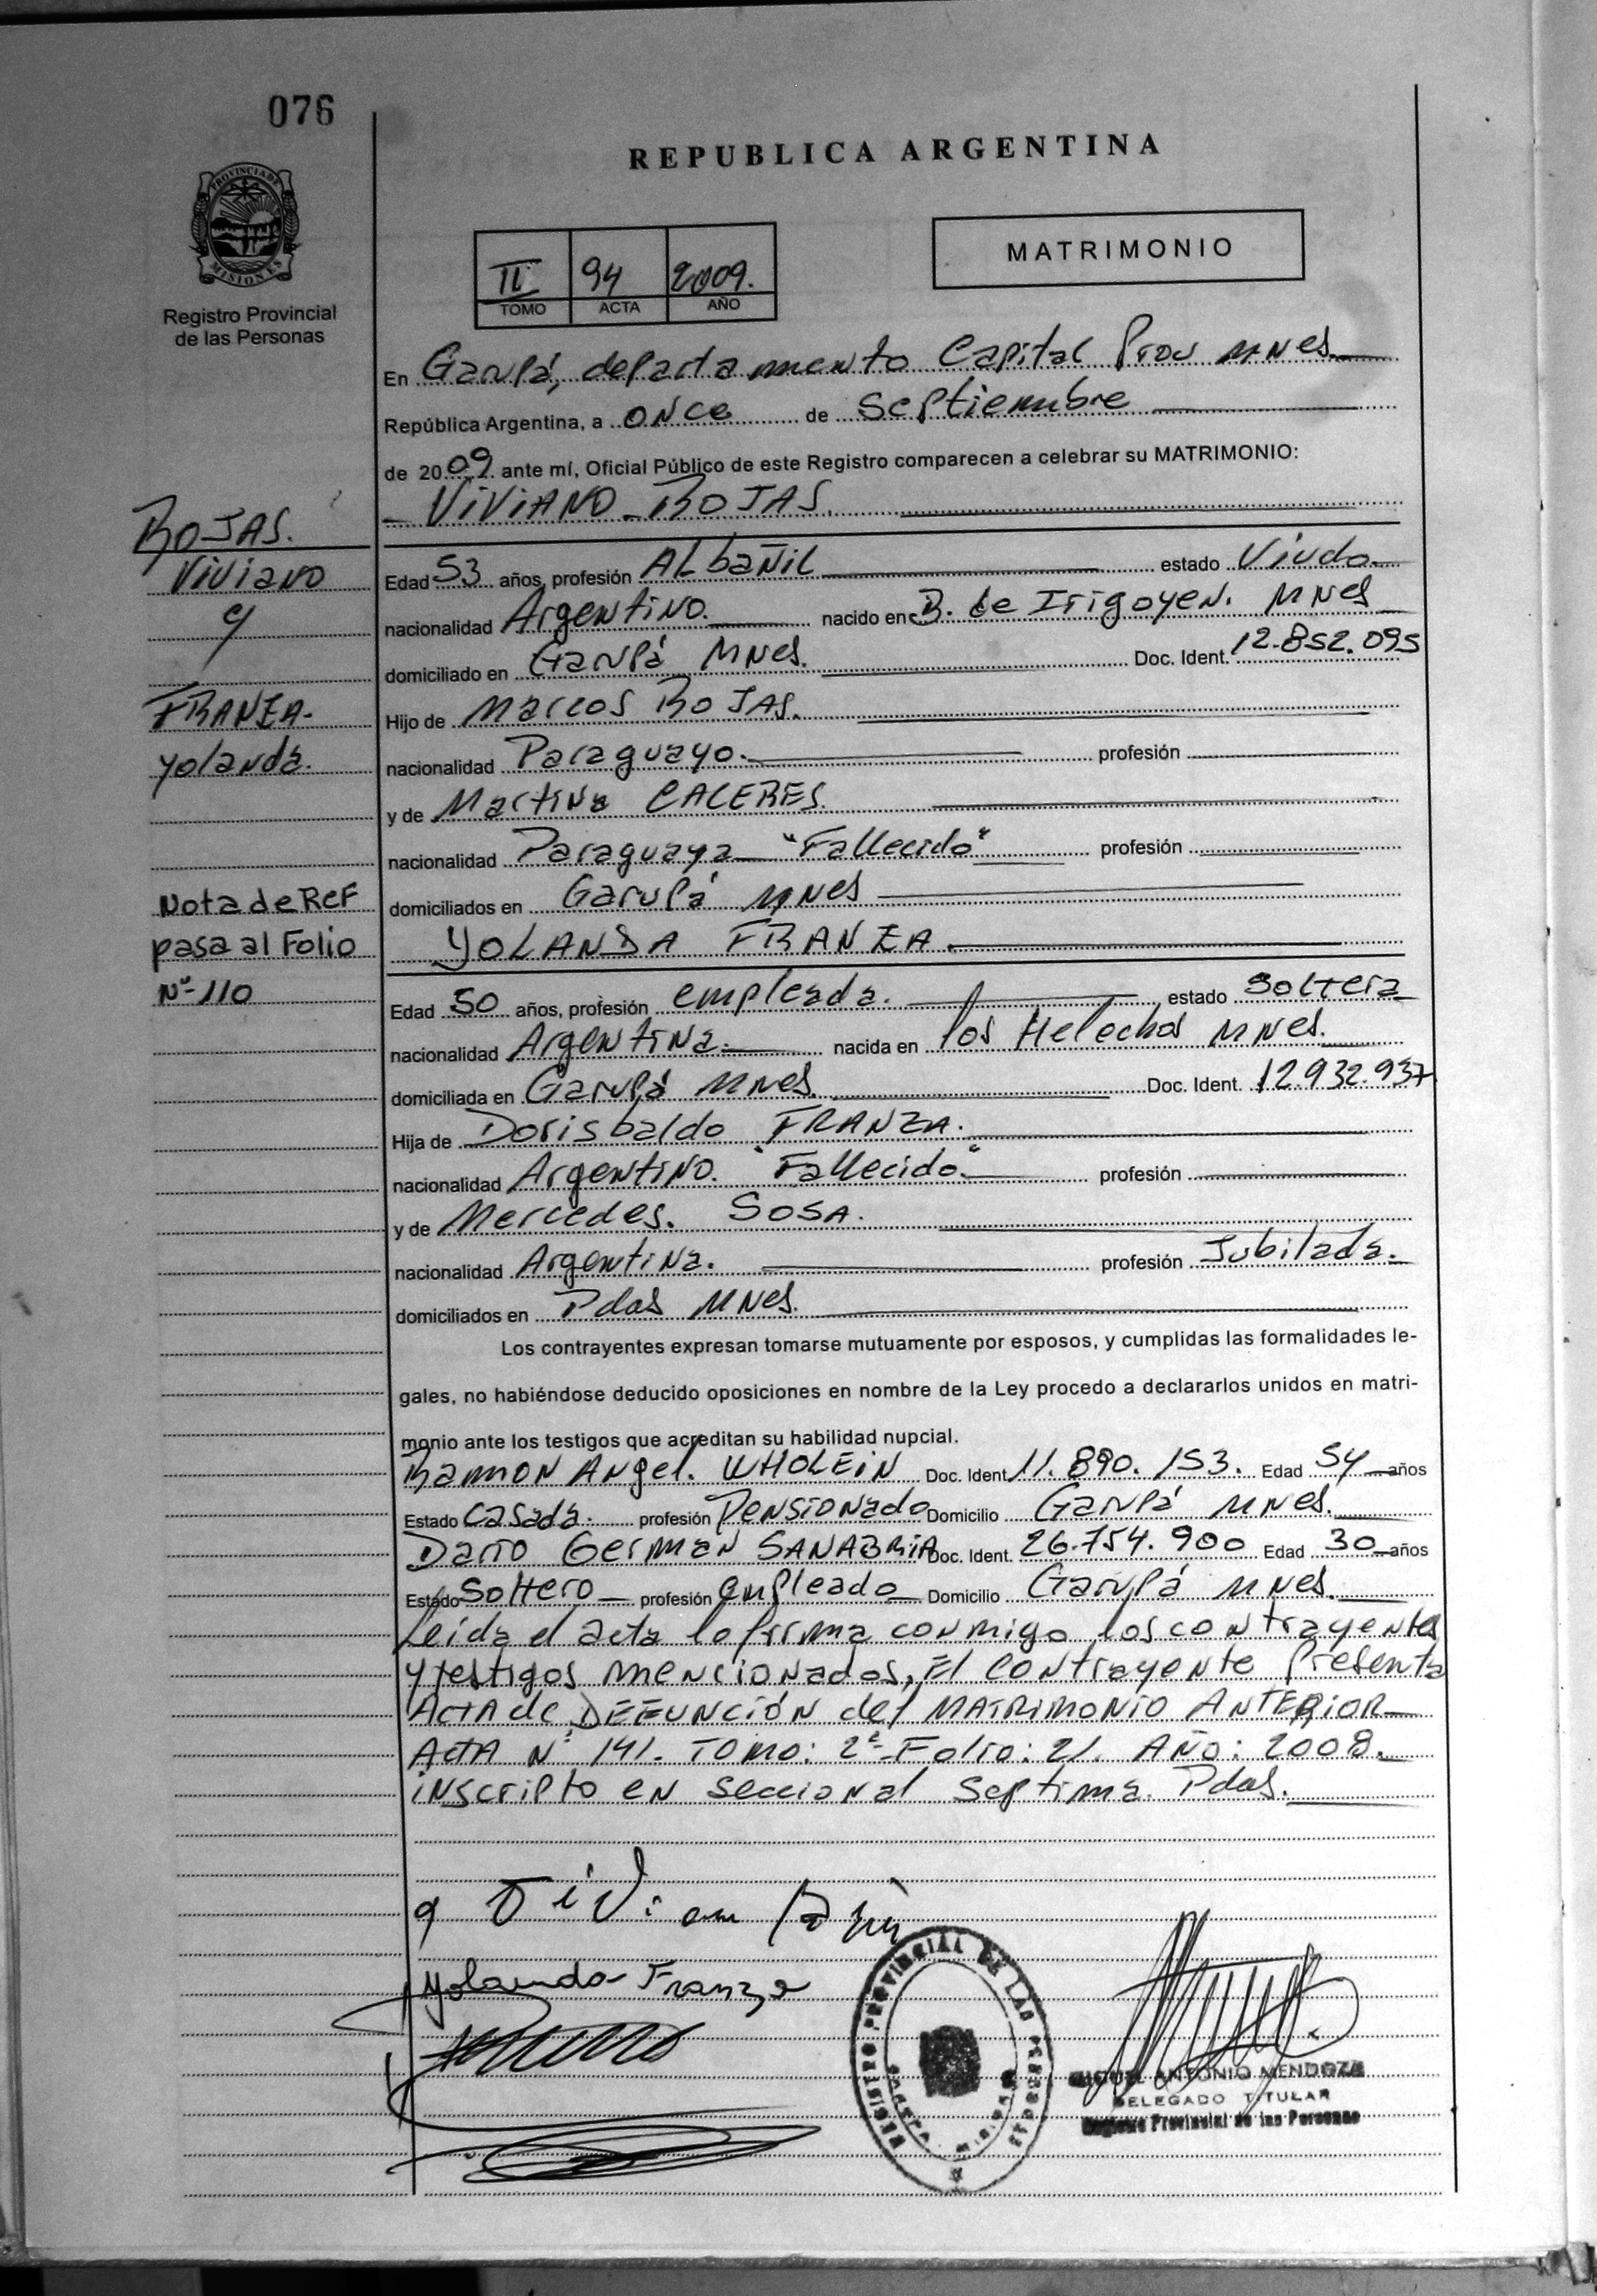 076
PROVINCIA DE
MISIONES
Registro Provincial
de las Personas
REPUBLICA ARGENTINA
II 94 2009.
TOMO ACTA AÑO
MATRIMONIO
En Garupá, departamento Capital Prov MNes
República Argentina, a once de septiembre
de 2009 ante mí, Oficial Público de este Registro comparecen a celebrar su MATRIMONIO:
VIVIANO ROJAS.
ROJAS.
Viviano
y
FRANZA-
yolanda.
Nota de Ref
pasa al Folio
Nº 110
Edad 53 años, profesión ALbañiL estado Viudo
nacionalidad Argentino. nacido en B. de Irigoyen. MNes
domiciliado en Garupá MNes. Doc. Ident. 12.852.095
Hijo de Marcos ROJAS.
nacionalidad Paraguayo. profesión
y de Martina CACERES.
nacionalidad Paraguaya "Fallecida" profesión
domiciliados en Garupá MNes
YOLANDA FRANZA.
Edad 50 años, profesión empleada. estado Soltera
nacionalidad Argentina. nacida en los Helechos MNes.
domiciliada en Garupá MNes. Doc. Ident. 12.932.937
Hija de Dorisbaldo FRANZA.
nacionalidad Argentino. "Fallecido" profesión
y de Mercedes. SOSA.
nacionalidad Argentina. profesión Jubilada.
domiciliados en Pdas MNes.
Los contrayentes expresan tomarse mutuamente por esposos, y cumplidas las formalidades le-
gales, no habiéndose deducido oposiciones en nombre de la Ley procedo a declararlos unidos en matri-
monio ante los testigos que acreditan su habilidad nupcial.
Ramon Angel. WHOLEIN Doc. Ident. 11.890.153. Edad 54 años
Estado Casada. profesión Pensionado Domicilio Garupá MNes.
Dario German SANABRIA Doc. Ident. 26.754.900 Edad 30 años
Estado Soltero profesión empleado Domicilio Garupá MNes.
Leida el acta lo firma conmigo los contrayentes
y testigos mencionados, El contrayente Presenta
Acta de DEFUNCIÓN del MATRIMONIO ANTERIOR
Acta Nº 141. TOMO: 2º Folio: 21. Año: 2008.
inscripto en seccional septima. Pdas.
Yolanda Franza
REGISTRO PROVINCIAL DE LAS PERSONAS
MIGUEL ANTONIO MENDOZA
DELEGADO TITULAR
Registro Provincial de las Personas